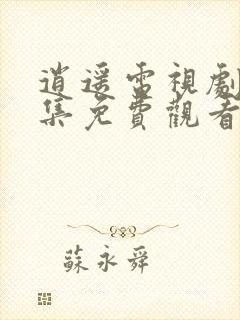 逍遥電視劇
集免費觀看
蘇永舜